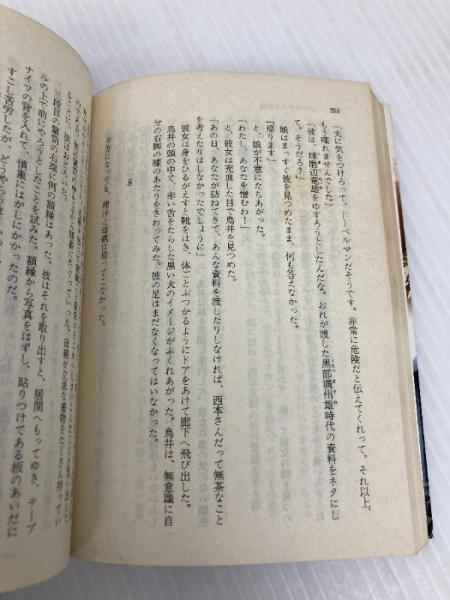 262
「犬に気をつけろって。ドーベルマンだそうです。非常に危険だと伝えてくれって。それ以上、
もう喋れませんでした」
「彼は、球磨辺竜雄をゆすろうとしたんだな。おれが渡した黒部満州雄時代の資料をネタにし
て。そうだろ?」
娘はまっすぐ彼を見つめたまま、何も答えなかった。
「帰ります」
と、娘が不意にたちあがった。
「わたし、あなたを憎むわ!」
と、彼女は充血した目で鳥井を見つめた。
「あの日、あなたが訪ねてきて、あんな資料を渡したりしなければ、西本さんだって無茶なこと
を考えたりはしなかったでしょうに」
彼女は身をひるがえすと靴をはき、体ごとぶつかるようにドアをあけて廊下へ飛び出した。
鳥井の頭の中で、赤い舌をたらした黒い犬のイメージがふくれあがった。鳥井は、無意識に自
分の右脚の膝のあたりをさわってみた。彼の足はまだなくなってはいなかった。
8
夕方になっても、
は帰ってこなかった。
ることに、彼はおどろいた。
三段目の簞笥の右端に例の額縁はあった。彼はそれを取り出すと、居間へもってゆき、テーブ
ルの上で前にやろうとしたことを試みた。額縁から写真をはずし、貼りつけてある板のあいだに
ナイフの背を入れて、慎重にはがしにかかったのだ。
すこし苦労したが、